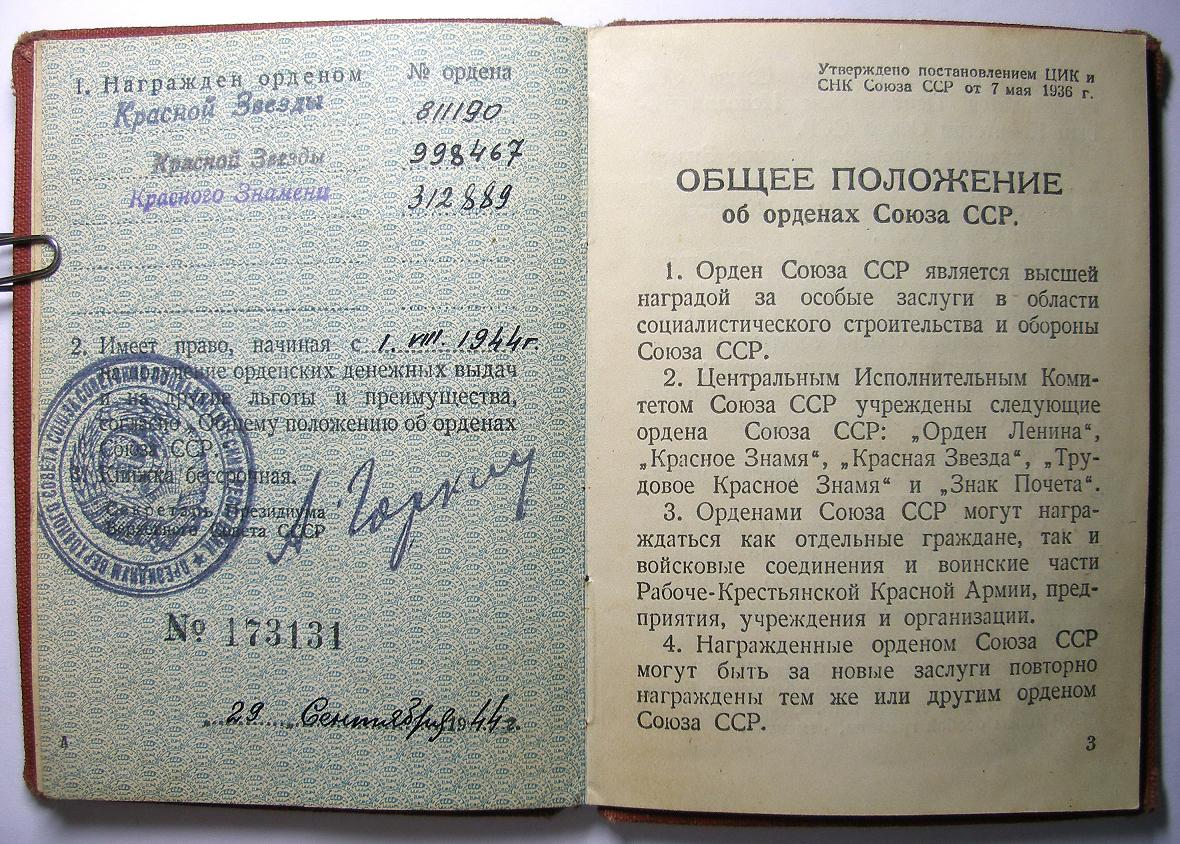 1. Награжден орденом № ордена
Красной Звезды 811190
Красной Звезды 998467
Красного Знамени 312889
2. Имеет право, начиная с 1. VIII. 1944 г.
на получение орденских денежных выдач
и на другие льготы и преимущества,
согласно „Общему положению об орденах
Союза ССР.
3. Книжка бессрочная.
Секретарь Президиума
Верховного Совета СССР
А Горкин
№ 173131
29 Сентября 1944 г.
Утверждено постановлением ЦИК и
СНК Союза ССР от 7 мая 1936 г.
ОБЩЕЕ ПОЛОЖЕНИЕ
об орденах Союза ССР.
1. Орден Союза ССР является высшей
наградой за особые заслуги в области
социалистического строительства и обороны
Союза ССР.
2. Центральным Исполнительным Коми-
тетом Союза ССР учреждены следующие
ордена Союза ССР: „Орден Ленина“,
„Красное Знамя“, „Красная Звезда“, „Тру-
довое Красное Знамя“ и „Знак Почета“.
3. Орденами Союза ССР могут награ-
ждаться как отдельные граждане, так и
войсковые соединения и воинские части
Рабоче-Крестьянской Красной Армии, пред-
приятия, учреждения и организации.
4. Награжденные орденом Союза ССР
могут быть за новые заслуги повторно
награждены тем же или другим орденом
Союза ССР.
3